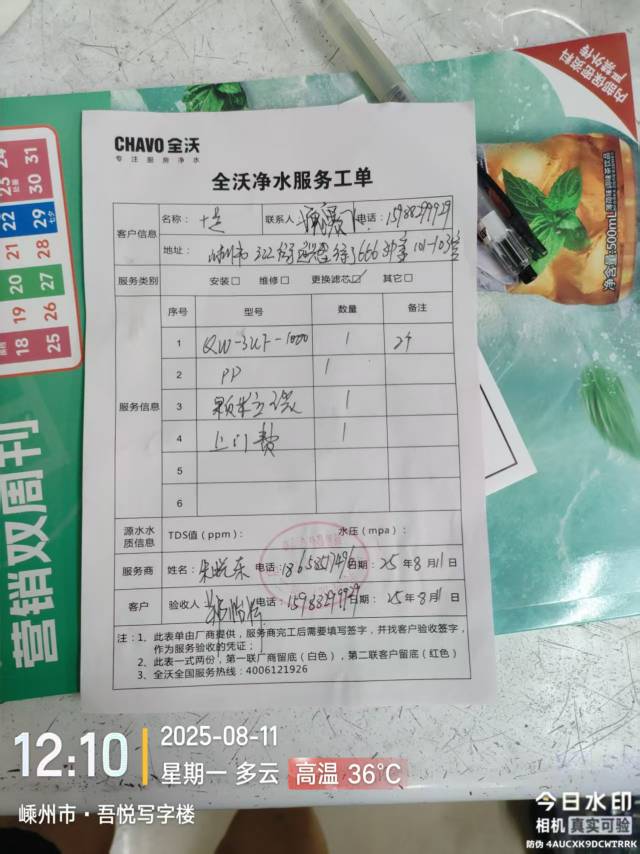 内部保密资料
严禁外传
净含量:500mL
营销双周刊
24 31
23 30
22 29 七夕
21 28
20 27
19 26
18 25
CHAVO 全沃
专注厨房净水
全沃净水服务工单
客户信息 名称: 联系人: 电话: 15988299929
地址: 嵊州市
服务类别 安装□ 维修□ 更换滤芯☑ 其它□
服务信息 序号 型号 数量 备注
1 QW-3UF-1000 1 24
2 PP 1
3 颗粒炭 1
4 上门费 1
5
6
源水水质信息 TDS值(ppm): 水压(mpa):
服务商 姓名: 电话: 18658517496 日期: 25年8月11日
客户 验收人 电话: 15988299929 日期: 25年8月11日
注:1、此表单由厂商提供,服务商完工后需要填写签字,并找客户验收签字,
作为服务验收的凭证;
2、此表一式两份,第一联厂商留底(白色),第二联客户留底(红色)
3、全沃全国服务热线:4006121926
12:10 2025-08-11
星期一 多云 高温 36℃
嵊州市·吾悦写字楼
今日水印
相机 真实可验
防伪 4AUCXK9DCWTRRK